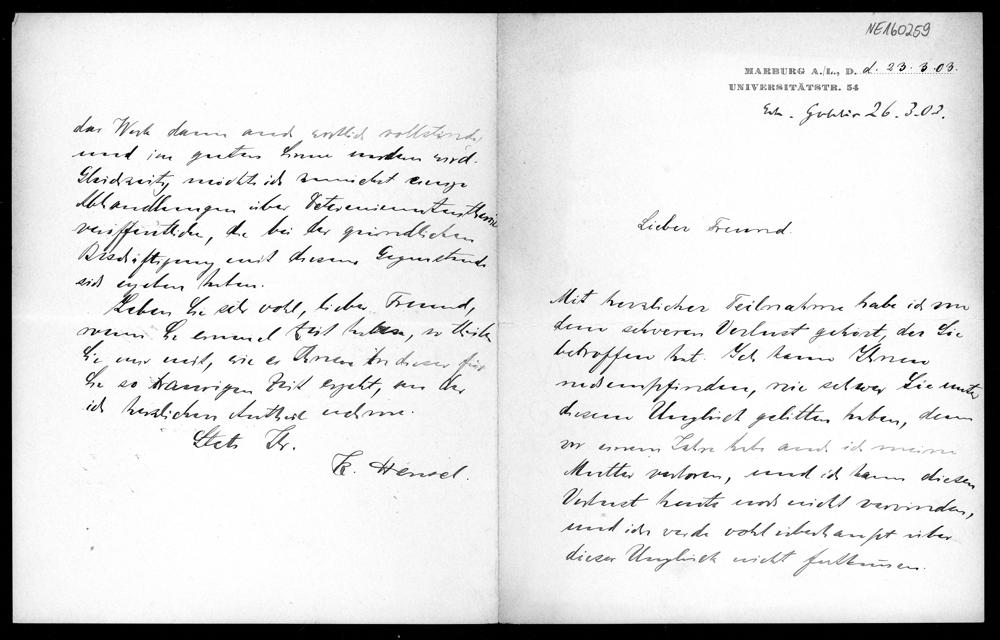 NE160259
MARBURG A./L., D. d. 23.3.03.
UNIVERSITÄTSTR. 54
26.3.03.
Lieber Freund
Mit herzlicher Teilnahme habe ich von
dem schweren Verlust gehört, der Sie
betroffen hat. Ich kann Ihnen
nachempfinden, wie schwer Sie unter
diesem Unglück gelitten haben, denn
vor einem Jahre habe auch ich meine
Mutter verloren, und ich kann diesen
Verlust heute noch nicht verwinden,
und ich werde wohl überhaupt über
dieses Unglück nicht fortkommen.
das Werk dann auch wirklich vollständig
und im guten Sinne modern wird.
Gleichzeitig möchte ich zunächst einige
Abhandlungen über Determinantentheorie
veröffentlichen, die bei der gründlichen
Beschäftigung mit diesem Gegenstande
sich ergeben haben.
Leben Sie sehr wohl, lieber Freund,
wenn Sie einmal Zeit haben, so theilen
Sie mir mit, wie es Ihnen in dieser für
Sie so traurigen Zeit ergeht, an der
ich herzlichen Antheil nehme.
Stets Ihr.
K. Hensel.